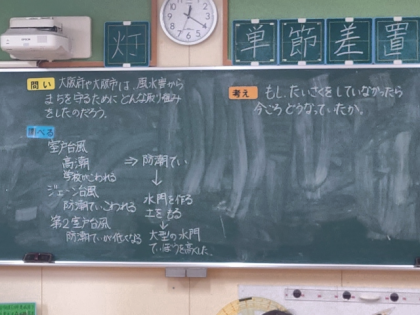 灯
単 節 差 置
問い
大阪府や大阪市は、風水害から
まちを守るためにどんな取り組み
をしたのだろう。
考え
もし、たいさくをしていなかったら
今ごろどうなっていたか。
調べる
室戸台風
高潮 ⇒ 防潮てい
学校がこわれる
↓
ジェーン台風
水門を作る
防潮ていこわれる
土をもる
↓
第2室戸台風
大型の水門
防潮ていが低くなる